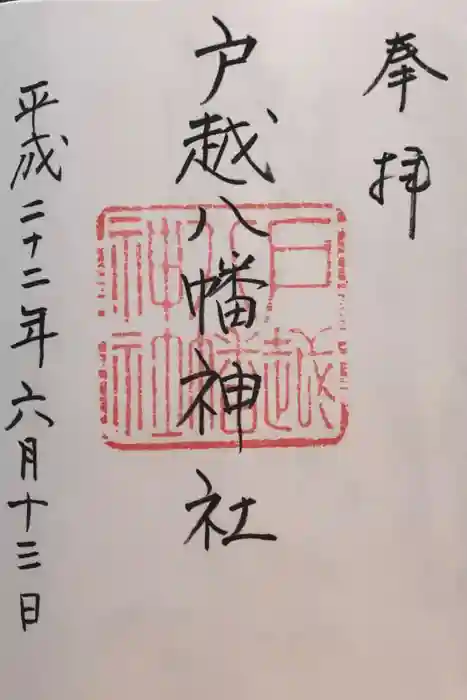 奉拝
戸越八幡神社
戸越
八幡
神社
平成二十二年六月十三日